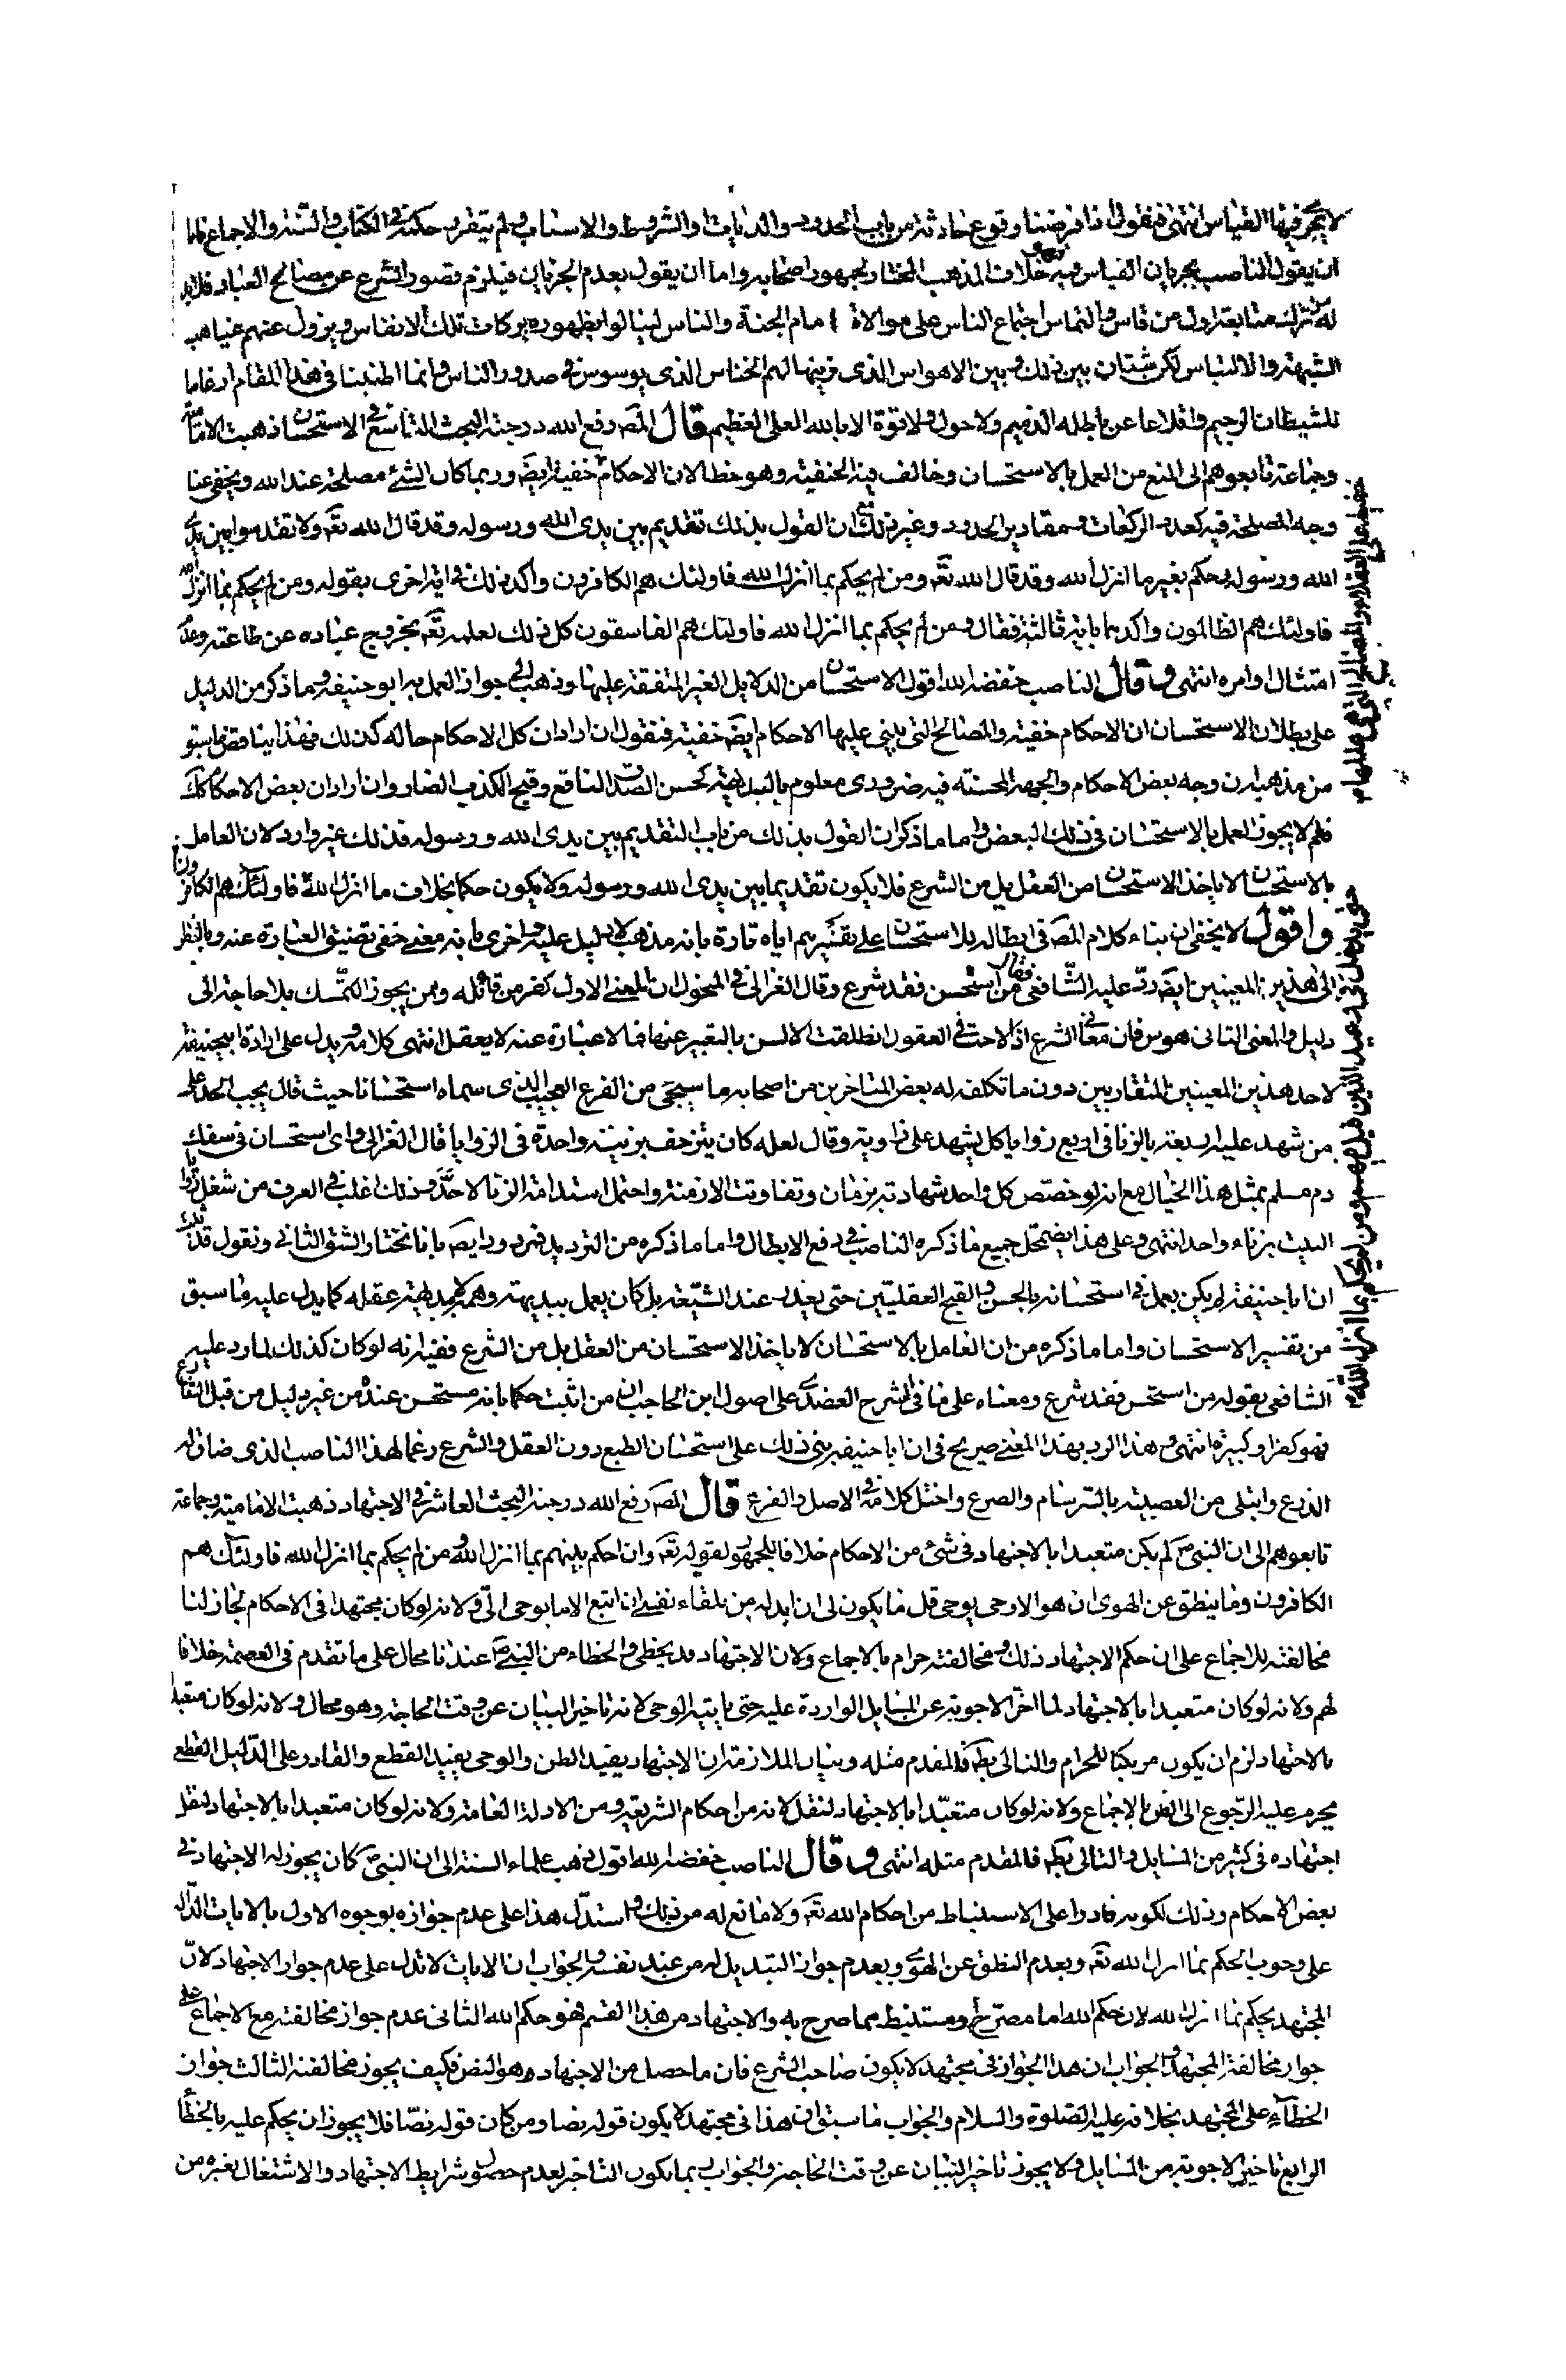 لا يجرى فيها القياس انتهى فنقول اذا فرضنا وقوع حادثة من باب الحدود والديات والشروط والاسباب ولم يتقرر حكمه في الكتاب والسنة والاجماع فاما
ان يقول الناصب بجريان القياس فيه فهو خلاف المذهب المختار لجمهور اصحابه واما ان يقول بعدم الجريان فيلزم قصور الشرع عن مصالح العباد فلابد
له من ترك متابعة اول من قاس والتماس اجتماع الناس على موالاة امام الجنة والناس لينالوا بظهوره بركات تلك الانفاس ويزول عنهم غياهب
الشبهة والالتباس لكن شتان بين ذلك وبين الاهواس الذى قرينها لهم الخناس الذى يوسوس في صدور الناس وانما اطنبنا في هذا المقام ارغاما
للشيطان الرجيم واقلاعا عن باطله الذميم ولا حول ولا قوة الا بالله العلى العظيم قال المص رفع الله درجته البحث التاسع في الاستحسان ذهبت الامامية
وجماعة تابعوهم الى المنع من العمل بالاستحسان وخالف فيه الحنفية وهو خطا لان الاحكام خفية ايض وربما كان الشئ مصلحة عند الله ويخفى عنا
وجه المصلحة فيه كعدد الركعات ومقادير الحدود وغير ذلك مع ان القول بذلك تقديم بين يدى الله ورسوله وقد قال الله تعه ولا تقدموا بين يدى
الله ورسوله وحكم بغير ما انزل الله وقد قال الله تعه ومن لم يحكم بما انزل الله فاولئك هم الكافرون واكد ذلك في اية اخرى بقوله ومن لم يحكم بما انزل الله
فاولئك هم الظالمون واكدهما باية ثالثة فقال ومن لم يحكم بما انزل الله فاولئك هم الفاسقون كل ذلك لعلمه تعه بخروج عباده عن طاعته وعدم
امتثال اوامره انتهى وقال الناصب خفضه الله اقول الاستحسان من الدلايل الغير المتفقة عليها وذهب الى جواز العمل به ابو حنيفه وما ذكر من الدليل
على بطلان الاستحسان ان الاحكام خفية والمصالح التى يبنى عليها الاحكام ايضه خفية فنقول ان اراد ان كل الاحكام حاله كذلك فهذا يناقض ما
من مذهبه ان وجه بعض الاحكام والجهة المحسنة فيه ضرورى معلوم بالبديهة كحسن الصدق النافع وقبح الكذب الضار وان اراد ان بعض الاحكام كك
فلم لا يجوز العمل بالاستحسان في ذلك البعض واما ما ذكر ان القول بذلك من باب التقديم بين يدى الله ورسوله فذلك غير وارد لان العامل
بالاستحسان لا ياخذ الاستحسان من العقل بل من الشرع فلا يكون تقديما بين يدى الله ورسوله ولا يكون حكما بخلاف ما انزل الله فاولئك هم الكافرون
واقول لا يخفى ان بناء كلام المص في ابطاله للاستحسان على تفسيرهم اياه تارة بانه مذهب لا بدليل عليه واخرى بانه معنى خفى تضيق العبارة عنه وبالنظر
الى هذين المعنيين ايضه ردّ عليه الشافعي فقال من استحسن فقد شرع وقال الغزالى في المنخول ان المعنى الاول كفر من قائله وممن يجوز التمسك بلا حاجة الى
دليل والمعنى الثانى هوس فان معاني الشرع اذا لاحت في العقول انطلقت الالسن بالتعبير عنها فما لا عبارة عنه لا يعقل انتهى كلامه ويدل على ارادة ابيحنيفة
لاحد هذين المعنيين المتقاربين دون ما تكلف له بعض المتاخرين من اصحابه ما سيجئ من الفرع العجيب الذى سماه استحسانا حيث قال يجب الحد على
من شهد عليه اربعة بالزنا في اربع زوايا كل يشهد على زاوية وقال لعله كان يتزحف بزنية واحدة في الزوايا قال الغزالى واى استحسان في سفك
دم مسلم بمثل هذا الخيال مع انه لو خصص كل واحد شهادته بزمان وتفاوتت الازمنة واحتمل استدامة الزنا لا حدّ وذلك اغلب في العرف من شغل زوايا
البيت بزناء واحد انتهى وعلى هذا يضمحل جميع ما ذكره الناصب في دفع الابطال واما ما ذكره من الترديد فمردود ايضه بانا نختار الشق الثانى ونقول قد ثبت
ان ابا حنيفة لم يكن يعمل في استحسانه بالحسن والقبح العقليين حتى يعذر عند الشيعة بل كان يعمل ببديهة وهمه لا ببديهة عقله كما يدل عليه ما سبق
من تفسير الاستحسان واما ما ذكره من ان العامل بالاستحسان لا ياخذ الاستحسان من العقل بل من الشرع ففيه انه لو كان كذلك لما رد عليه
الشافعى بقوله من استحسن فقد شرع ومعناه على ما في الشرح العضدى على اصول ابن الحاجب ان من اثبت حكما بانه مستحسن عنده من غير دليل من قبل الشارع
فهو كفر او كبيرة انتهى وهذا الرد بهذا المعنى صريح في ان ابا حنيفه بنى ذلك على استحسان الطبع دون العقل والشرع رغما لهذا الناصب الذى ضاق له
الذرع وابتلى من العصبية بالسرسام والصرع واختل كلامه في الاصل والفرع قال المص رفع الله درجته البحث العاشر في الاجتهاد ذهبت الامامية وجماعة
تابعوهم الى ان النبى ص لم يكن متعبدا بالاجتهاد في شئ من الاحكام خلافا للجمهور لقوله تعه وان احكم بينهم بما انزل الله ومن لم يحكم بما انزل الله فاولئك هم
الكافرون وما ينطق عن الهوى ان هو الا وحى يوحى قل ما يكون لى ان ابدله من تلقاء نفسى ان اتبع الا ما يوحى الىّ ولانه لو كان مجتهدا في الاحكام لجاز لنا
مخالفته للاجماع على ان حكم الاجتهاد ذلك ومخالفته حرام بالاجماع ولان الاجتهاد قد يخطى والخطاء من النبى ص عندنا محال على ما تقدم في العصمة خلافا
لهم ولانه لو كان متعبدا بالاجتهاد لما اخّر الاجوبة عن المسايل الواردة عليه حتى ياتيه الوحى لانه تاخير البيان عن وقت الحاجة وهو محال ولانه لو كان متعبدا
بالاجتهاد لزم ان يكون مرتكبا للحرام والتالى بط فالمقدم مثله وبيان الملازمة ان الاجتهاد يفيد الظن والوحى يفيد القطع والقادر على الدليل القطعى
يحرم عليه الرجوع الى الظن بالاجماع ولانه لو كان متعبّدا بالاجتهاد لنقل لانه من احكام الشريعة ومن الادلة العامة ولانه لو كان متعبدا بالاجتهاد لنقل
اجتهاده في كثير من المسايل والتالى بط فالمقدم مثله انتهى وقال الناصب خفضه الله اقول ذهب علماء السنة الى ان النبى ص كان يجوز له الاجتهاد في
بعض الاحكام وذلك لكونه قادرا على الاستنباط من احكام الله تعه ولا مانع له من ذلك واستدلّ هذا على عدم جوازه بوجوه الاول بالايات الدالة
على وجوب الحكم بما انزل الله تعه وبعدم النطق عن الهوى وبعدم جواز التبديل له من عند نفسه والجواب ان الايات لا تدل على عدم جواز الاجتهاد لانّ
المجتهد يحكم بما انزل الله لان حكم الله اما مصرّح او مستنبط مما صرح به والاجتهاد من هذا القسم فهو حكم الله الثانى عدم جواز مخالفته مع الاجماع على
جواز مخالفة المجتهد والجواب ان هذا الجواز في مجتهد لا يكون صاحب الشرع فان ما حصل من الاجتهاد وهو النص فكيف يجوز مخالفته الثالث جواز
الخطاء على المجتهد بخلافه عليه الصلوة والسلام والجواب ما سبق ان هذا في مجتهد لا يكون قوله نصا ومن كان قوله نصّا فلا يجوز ان يحكم عليه بالخطأ
الرابع تاخير الاجوبة من المسايل ولا يجوز تاخير البيان عن وقت الحاجة والجواب ربما يكون التاخير لعدم حصول شرايط الاجتهاد والاشتغال بغيره من